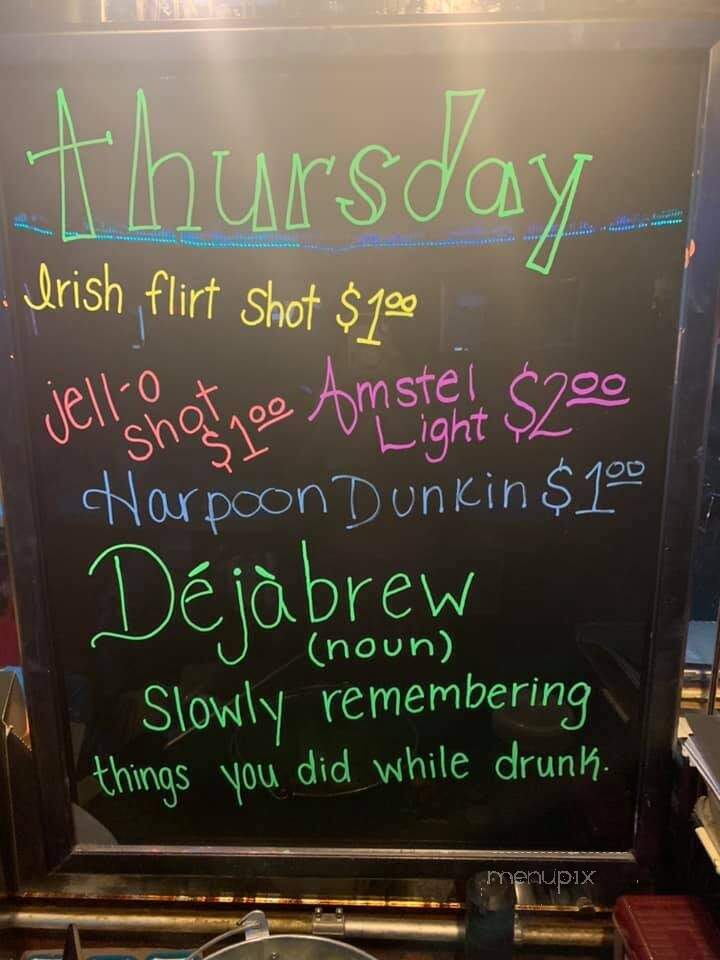 thursday
Irish flirt shot $1.00
jell-o shot $1.00
Amstel Light $2.00
Harpoon Dunkin $1.00
Déjàbrew
(noun)
Slowly remembering
things you did while drunk.
menupix